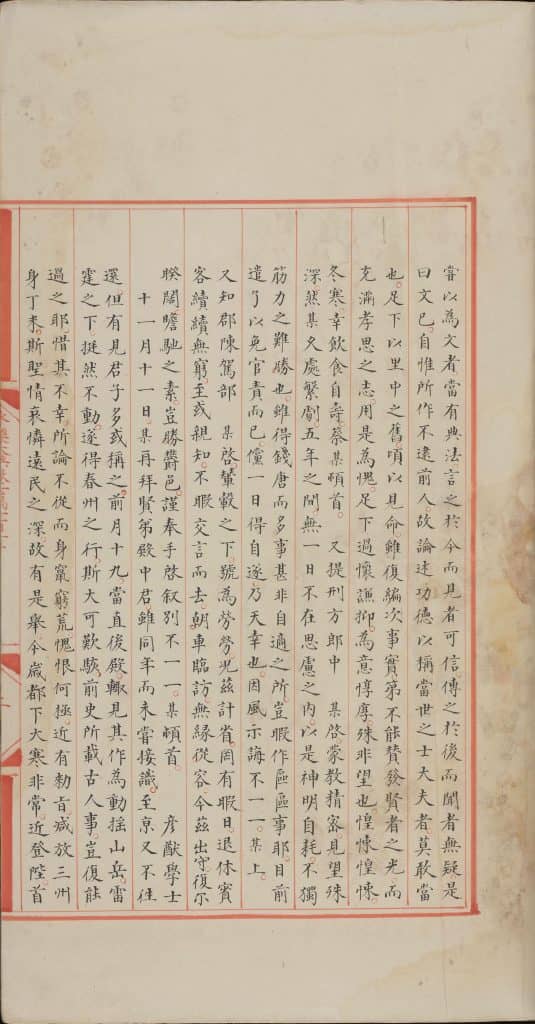 嘗以為文者當有典法言之於今而見者可信傳之於後而聞者無疑是
曰文已自惟所作不逮前人故論述功德以稱當世之士大夫者莫敢當
也足下以里中之舊頃以見命雖復編次事實第不能賛發賢者之光而
充滿孝思之志用是為愧足下過懷謙抑為意惇厚殊非望也惶悚惶悚
冬寒幸飲食自壽蔡某頓首　又提刑方郎中　某啓蒙教精審見望殊
深然某久處繁劇五年之間無一日不在思慮之内以是神明自耗不獨
筋力之難勝也雖得錢唐而多事甚非自適之所豈暇作區區事耶目前
遣了以免官責而已儻一日得自遂乃天幸也因風示誨不一一某上
又知郡陳駕部　某啓輦轂之下號為勞勞況茲計省罔有暇日退休賓
客續續無窮至或親知不暇交言而去朝車臨訪無緣從容今茲出守復尔
睽闊瞻馳之素豈勝鬱邑謹奉手啓叙別不一一某頓首　彦猷學士
十一月十一日某再拜賢弟殿中君雖同年而未嘗接識至京又不徃
還但有見君子多或稱之前月十九當直後殿輙見其作為動揺山岳雷
霆之下挺然不動遂得春州之行斯大可歎駭前史所載古人事豈復能
過之耶惜其不幸所論不從而身竄窮荒愧恨何極近有勑旨減放三州
身丁米斯聖情哀憐遠民之深故有是舉今歳都下大寒非常近登陛首